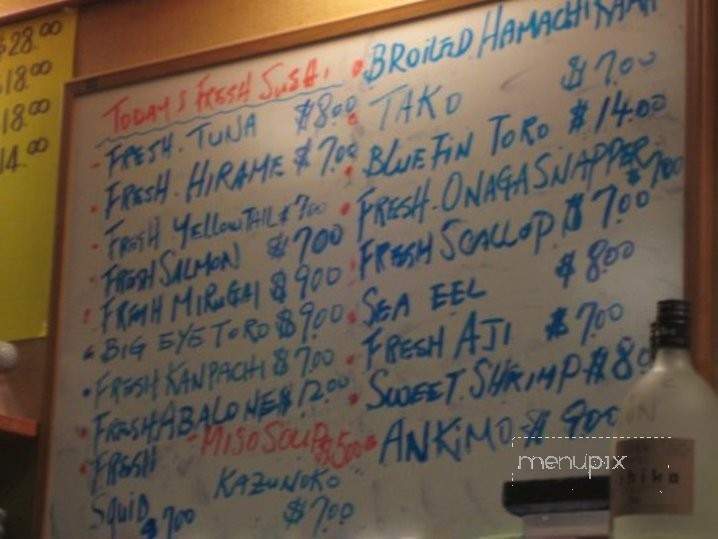 $28.00
$18.00
18.00
14.00
TODAY'S FRESH SUSHI
FRESH. TUNA $8.00
FRESH. HIRAME $7.00
FRESH YELLOWTAIL $7.00
FRESH SALMON $7.00
FRESH MIRUGAI $9.00
BIG EYE TORO $9.00
FRESH KANPACHI $7.00
FRESH ABALONE $12.00
FRESH
SQUID $7.00
MISO SOUP $5.00
KAZUNOKO
$7.00
BROILED HAMACHI KAMA
TAKO $7.00
BLUE FIN TORO $14.00
FRESH. ONAGA SNAPPER $7.00
FRESH SCALLOP $7.00
SEA EEL $8.00
FRESH AJI $7.00
SWEET. SHRIMP $8.0
ANKIMO $9.00
menupix